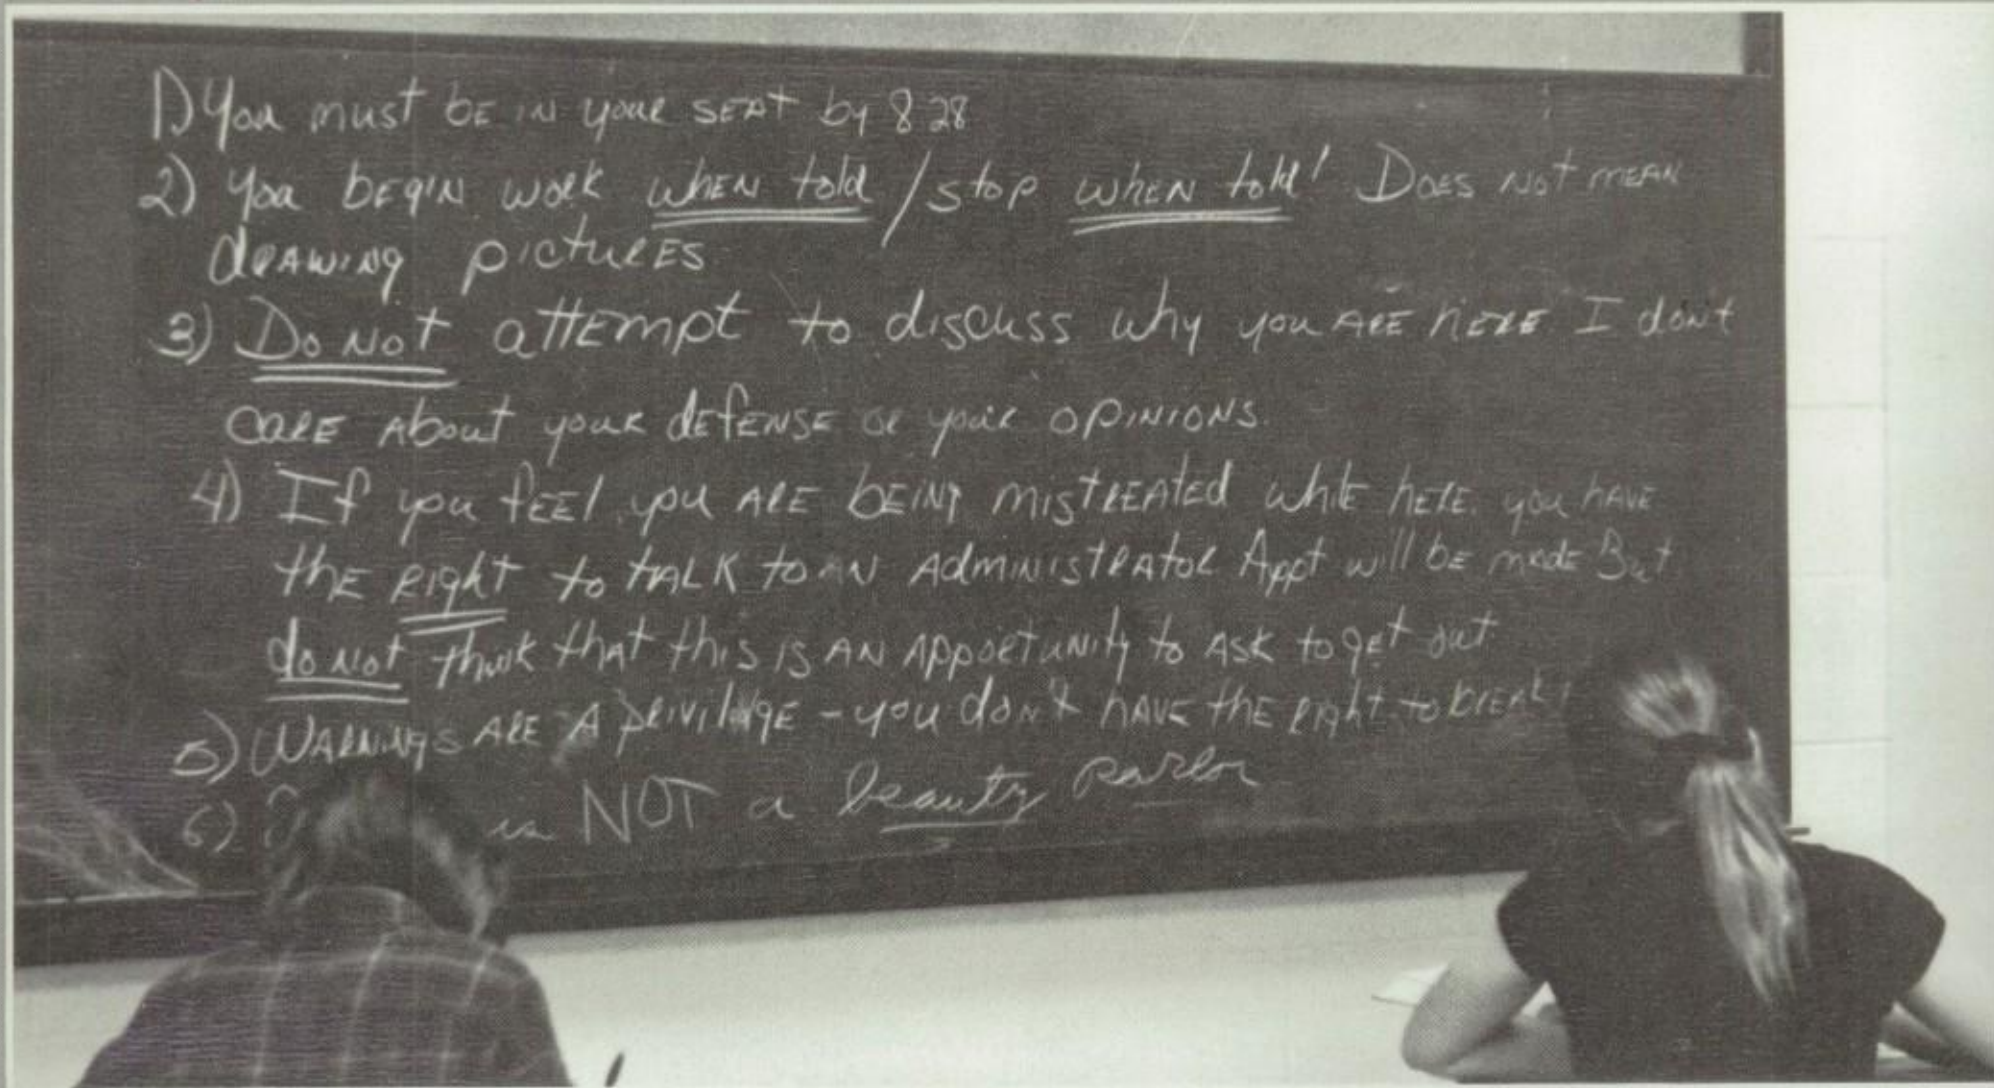 1) You must be in your seat by 8 28
2) You begin work when told / stop when told! Does not mean
drawing pictures
3) Do Not attempt to discuss why you are here I don't
care about your defense or your opinions.
4) If you feel you are being mistreated while here. you have
the right to talk to an administrator Appt will be made But
do not think that this is an apportunity to ask to get out.
5) Warnings are a privilage - you don't have the right to break
6) is NOT a beauty parlor